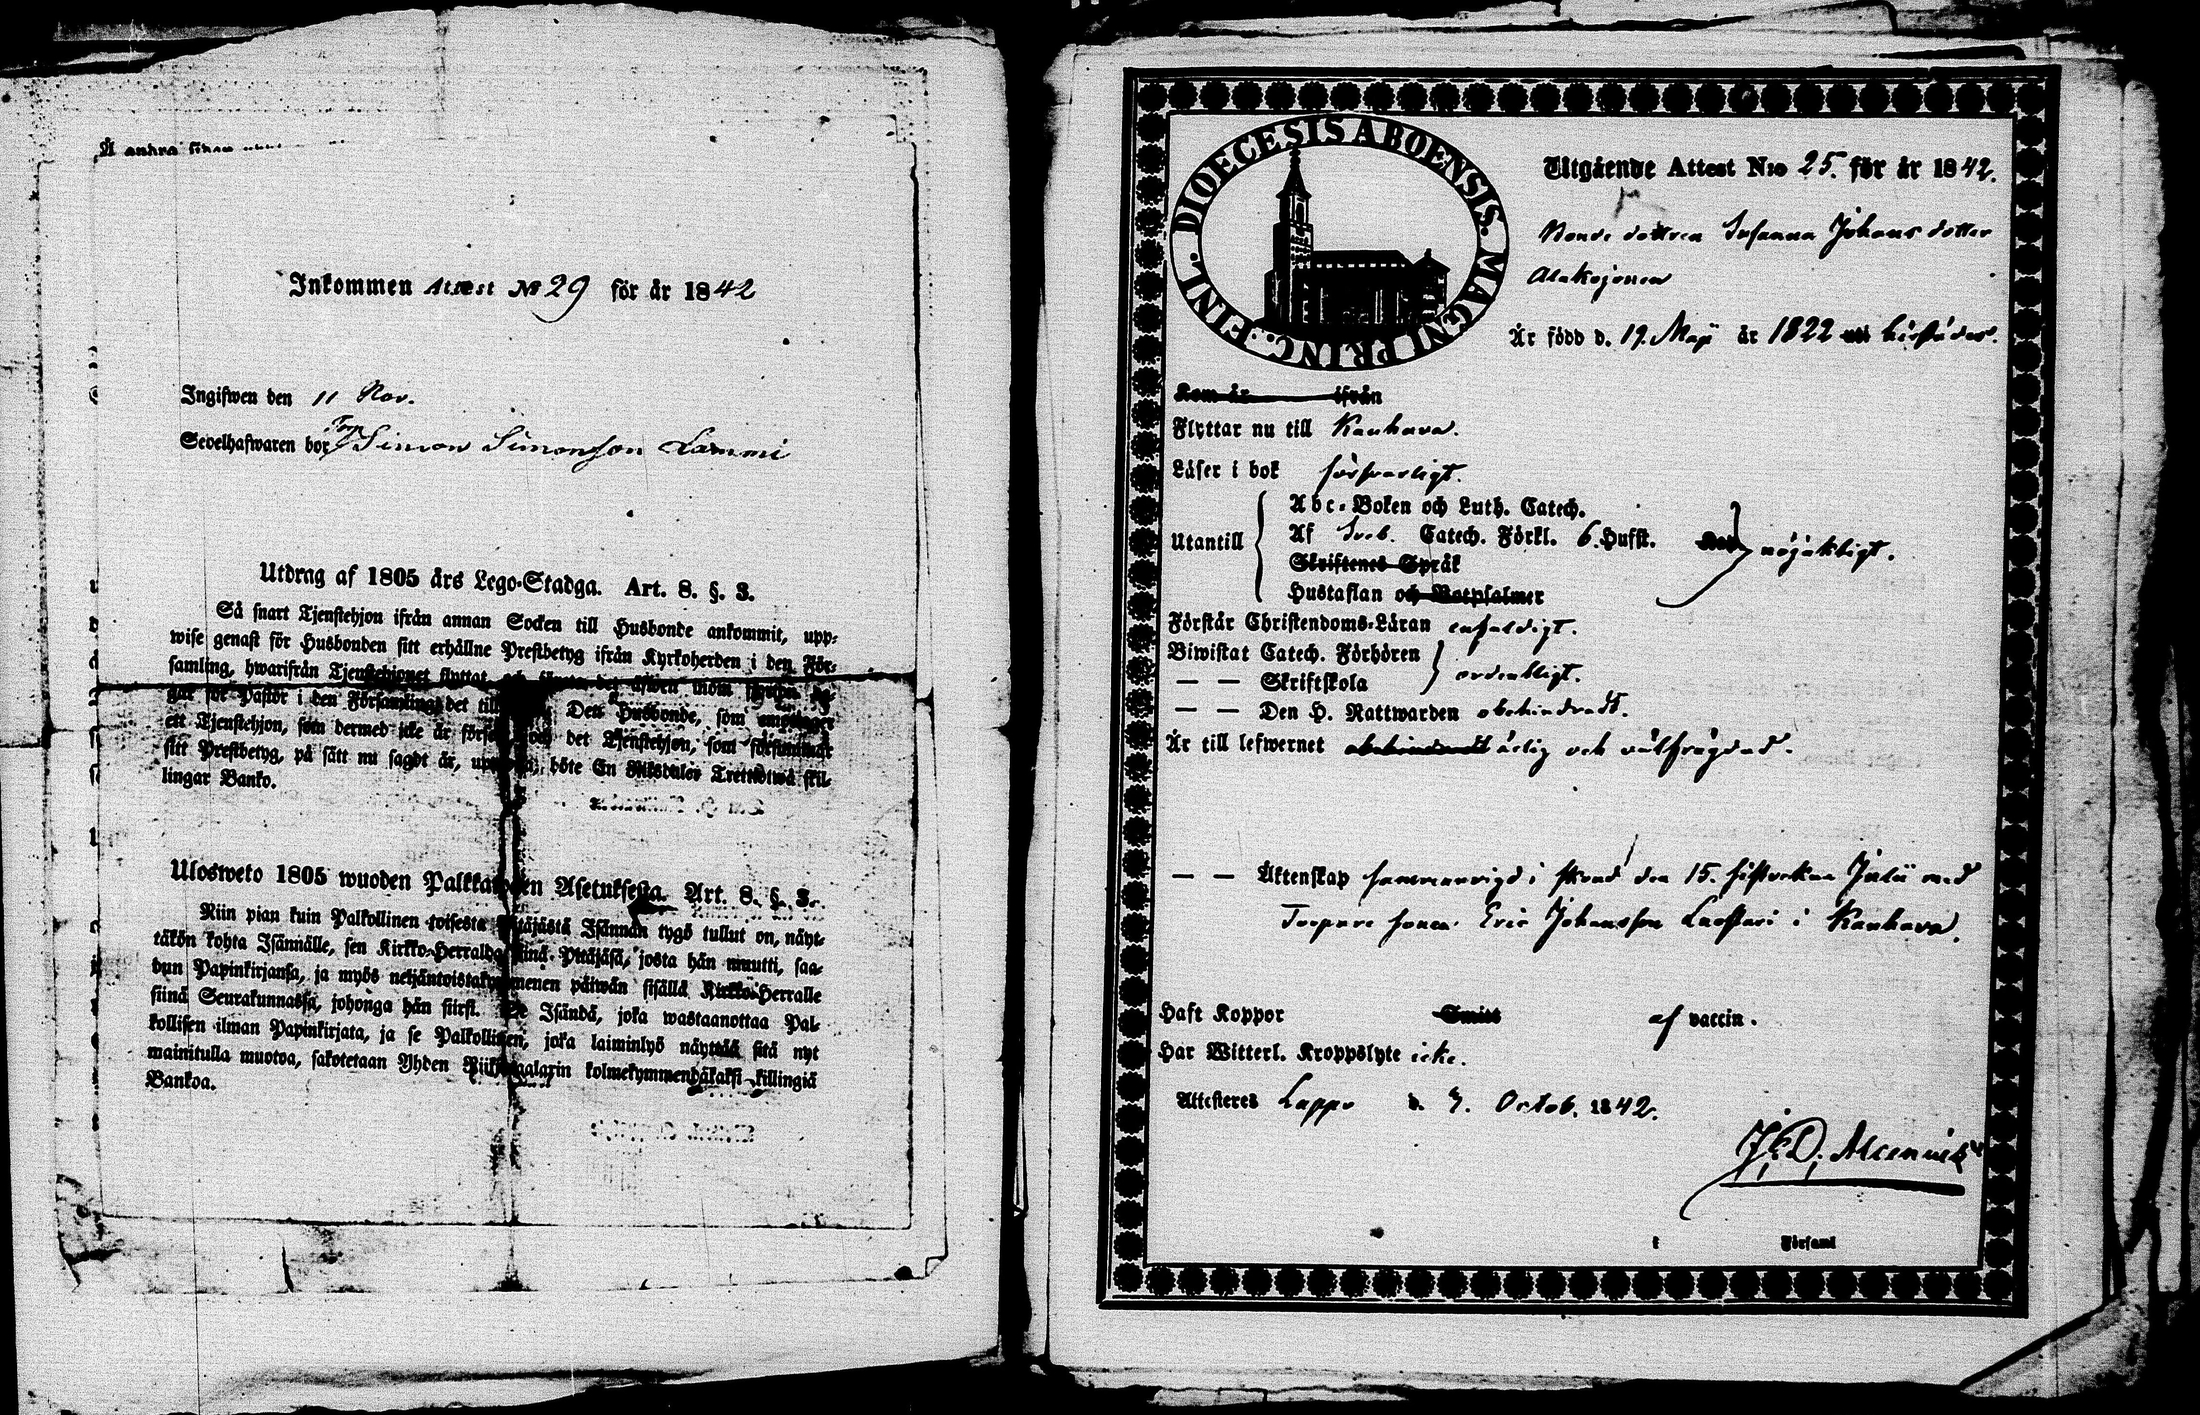 Å andra sidan
Inkommen Attest № 29 för år 1842
Ingifwen den 11 Nov.
Sedelhafwaren bor Torp Simon Simonsson Lammi
Utdrag af 1805 års Lego-Stadga. Art. 8. §. 3.
Så snart Tjenstehjon ifrån annan Socken till Husbonde ankommit, upp-
wise genast för Husbonden sitt erhållne Prestbetyg ifrån Kyrkoherden i den För-
samling, hwarifrån Tjenstehjonet flyttat, det äfwen inom
gar för Pastor i den Församling det till Den Husbonde, som emottager
ett Tjenstehjon, som dermed icke är förse och det Tjenstehjon, som försummar
sitt Prestbetyg, på sätt nu sagdt är, uppwisa, böte En Riksdaler Trettiotwå skil-
lingar Banko.
Ulosweto 1805 wuoden Palkka Asetuksesta. Art. 8. §. 3.
Niin pian kuin Palkollinen toisesta Pitäjästä Isännän tygö tullut on, näyt-
täkön kohta Isännälle, sen Kirkko-Herralda siinä Pitäjäsä, josta hän muutti, saa-
dun Papinkirjansa, ja myös neljäntoistakymmenen päiwän sisällä Kirkko-Herralle
siinä Seurakunnassa, johonga hän siirsi. Se Isändä, joka wastaanottaa Pal-
kollisen ilman Papinkirjata, ja se Palkollinen, joka laiminlyö näyttää sitä nyt
mainitulla muotoa, sakotetaan Yhden Riiksdaalarin kolmekymmendäkaksi killingiä
Bankoa.
DIOECESIS ABOENSIS. MAGNI PRINC. FINL.
Utgående Attest N:o 25. för år 1842.
Bonde dottren Susanna Johans dotter
Alakojonen
Är född d. 19. Maji år 1822 härstädes.
Kom år ifrån
Flyttar nu till Kauhava.
Läser i bok försvarligt.
Utantill
Abc-Boken och Luth. Catech.
Af Sveb. Catech. Förkl. 6. Hufst.
Skriftenes Språk
Hustaflan och Botpsalmer
nöjaktigt.
Förstår Christendoms-Läran enfaldigt.
Biwistat Catech. Förhören
— — Skriftskola
ordentligt.
— — Den H. Nattwarden obehindradt.
Är till lefwernet obehindradt ärlig och välfrägdad.
— — Äktenskap sammanvigd i stånd den 15. sistvekne Julii med
Torpare sonen Eric Johansson Luostari i Kauhava.
Haft Koppor Smitt af vaccin.
Har Witterl. Kroppslyte icke.
Attesteres Lappo d. 7. Octob. 1842.
i Församl